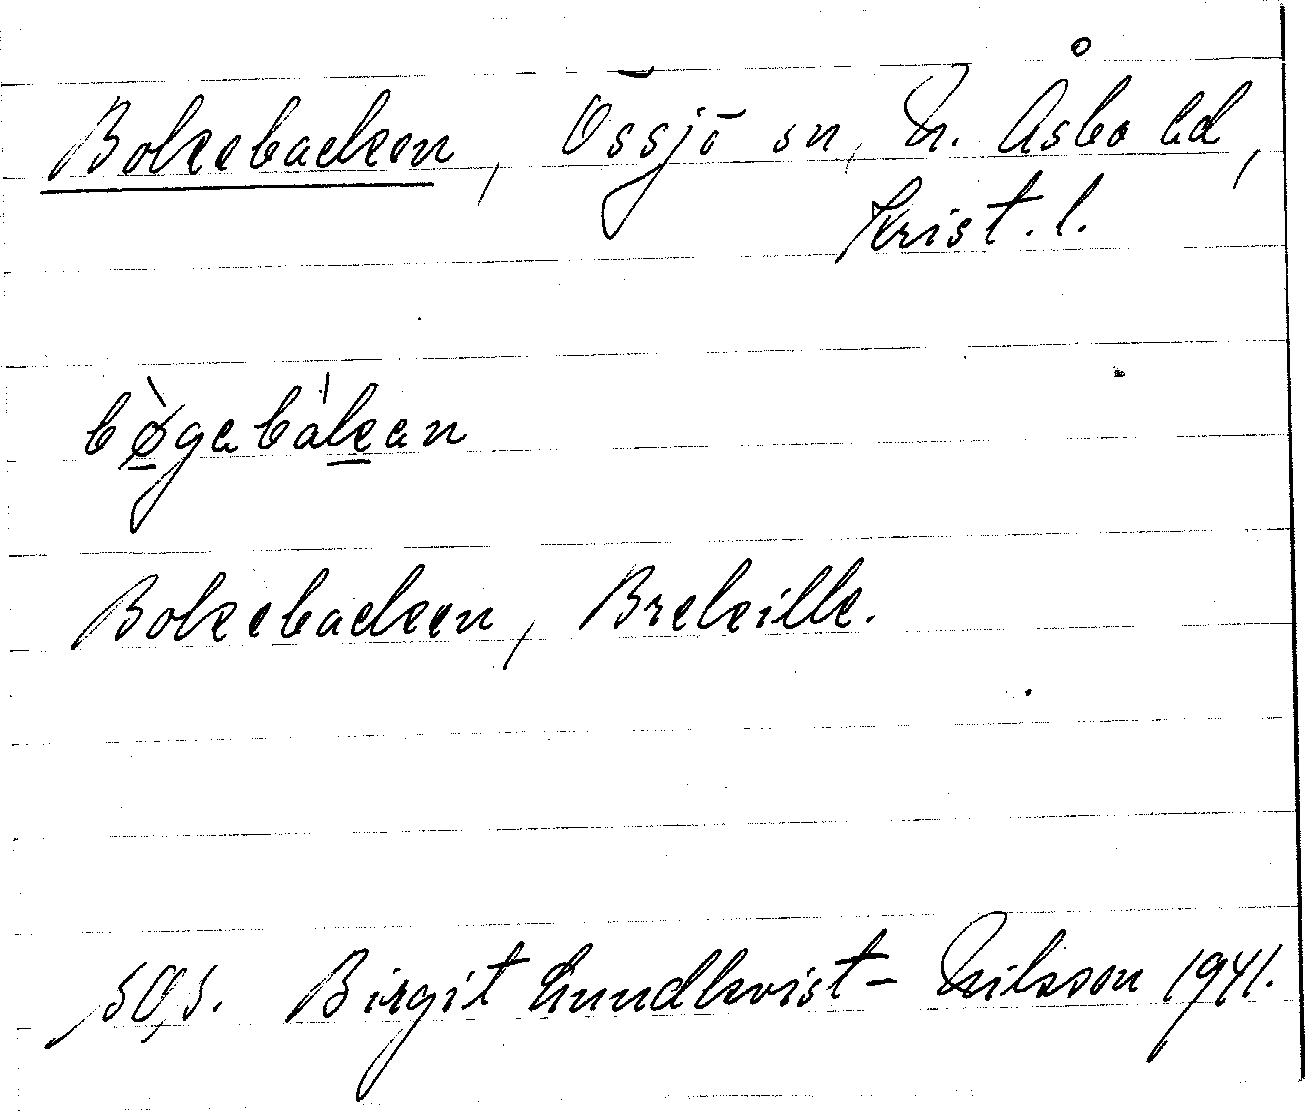 Bokebacken, Össjö sn, N. Åsbo hd,
Krist. l.
bø̀gabàkan
Bokebacken, Brckille.
SOS. Birgit Lundkvist-Nilsson 1941.